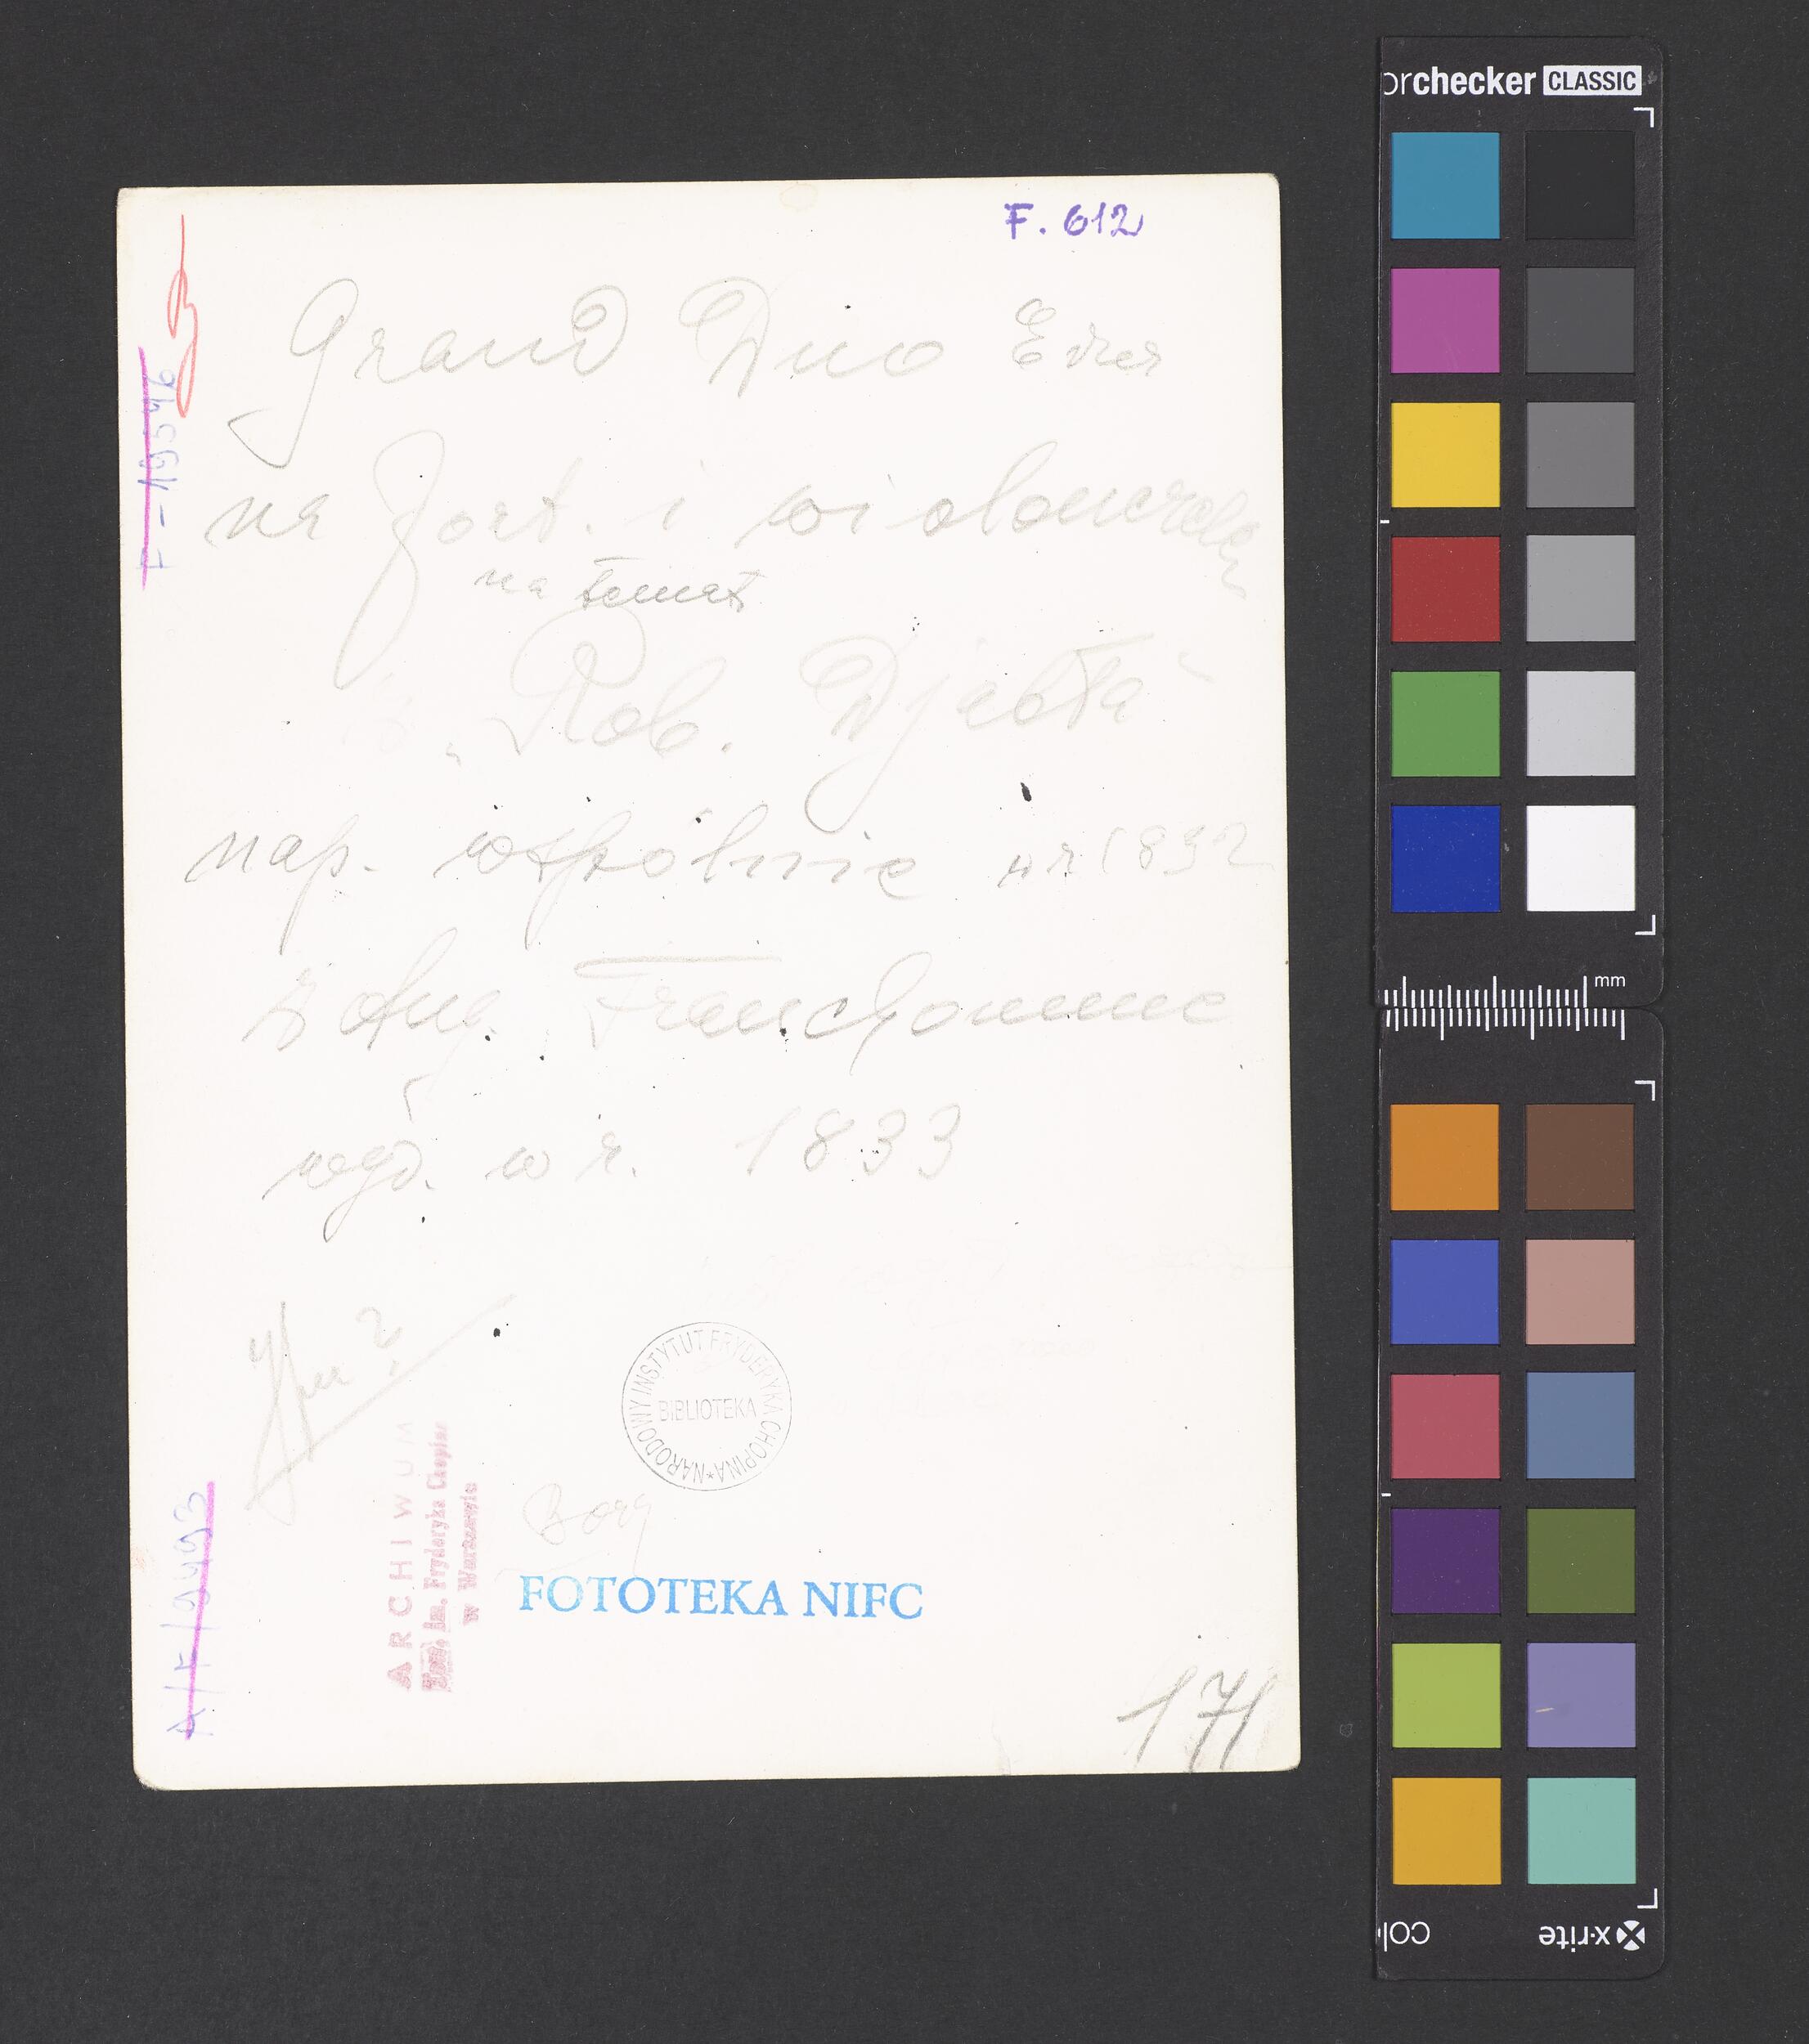 F. 612
Grand Duo Edur
na fort. i wiolonczelę
na temat
„Rob. Djabła"
nap. wspólnie w r 1832
z Aug. Franchomme
wyd. w r. 1833
NARODOWY INSTYTUT FRYDERYKA CHOPINA
BIBLIOTEKA
ARCHIWUM
Tow. im. Fryderyka Chopina
w Warszawie
FOTOTEKA NIFC
171
orchecker CLASSIC
mm
x-rite
col